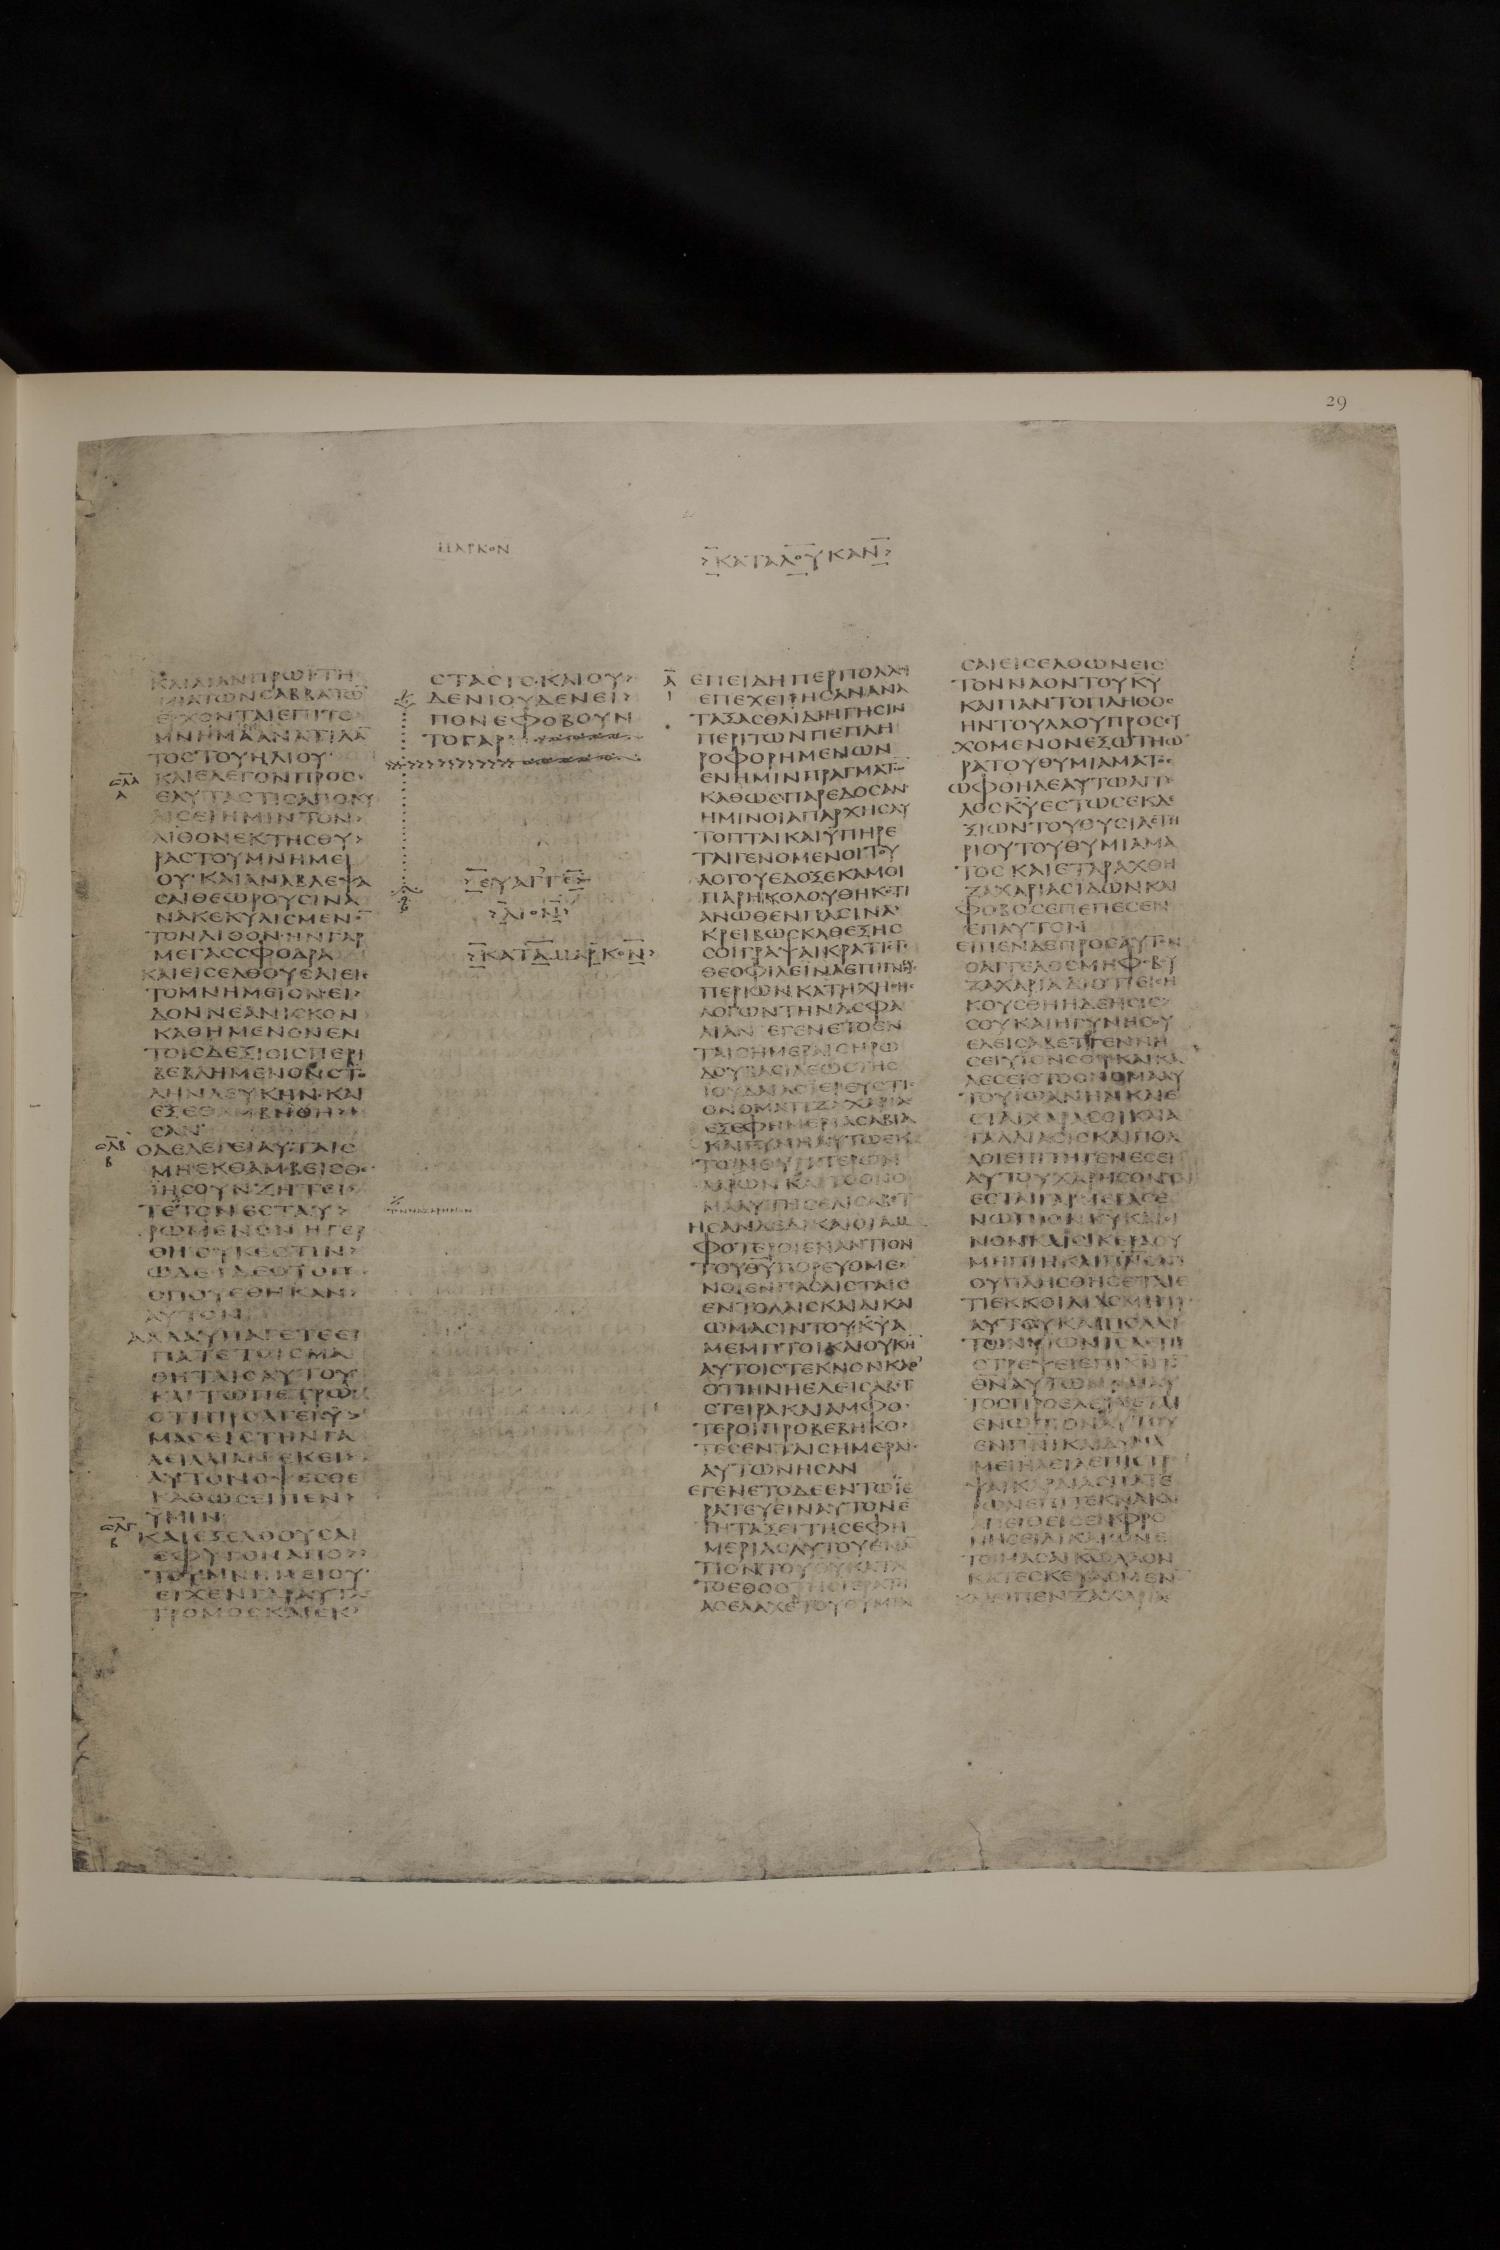 29
ΜΑΡΚΟΝ
ΚΑΤΑ ΛΟΥΚΑΝ
ΚΑΙΛΙΑΝΠΡΩΙΤΗ
ΜΙΑΤΩΝΣΑΒΒΑΤΩ
ΕΡΧΟΝΤΑΙΕΠΙΤΟ
ΜΝΗΜΑΑΝΑΤΙΛΑ
ΤΟϹΤΟΥΗΛΙΟΥ
ΚΑΙΕΛΕΓΟΝΠΡΟϹ
ΕΑΥΤΑϹΤΙϹΑΠΟΚΥ
ΛΙϹΕΙΗΜΙΝΤΟΝ
ΛΙΘΟΝΕΚΤΗϹΘΥ
ΡΑϹΤΟΥΜΝΗΜΕΙ
ΟΥ·ΚΑΙΑΝΑΒΛΕΨΑ
ϹΑΙΘΕΩΡΟΥϹΙΝΑ
ΝΑΚΕΚΥΛΙϹΜΕΝΟ
ΤΟΝΛΙΘΟΝ·ΗΝΓΑΡ
ΜΕΓΑϹϹΦΟΔΡΑ
ΚΑΙΕΙϹΕΛΘΟΥϹΑΙΕΙϹ
ΤΟΜΝΗΜΕΙΟΝΕΙ
ΔΟΝΝΕΑΝΙϹΚΟΝ
ΚΑΘΗΜΕΝΟΝΕΝ
ΤΟΙϹΔΕΞΙΟΙϹΠΕΡΙ
ΒΕΒΛΗΜΕΝΟΝϹΤΟ
ΛΗΝΛΕΥΚΗΝ·ΚΑΙ
ΕΞΕΘΑΜΒΗΘΗ
ϹΑΝ
ΟΔΕΛΕΓΕΙΑΥΤΑΙϹ
ΜΗΕΚΘΑΜΒΕΙϹΘΕ
ΙΗϹΟΥΝΖΗΤΕΙ
ΤΕΤΟΝΕϹΤΑΥ
ΡΩΜΕΝΟΝΗΓΕΡ
ΘΗΟΥΚΕϹΤΙΝ
ΩΔΕΙΔΕΟΤΟΠΟϹ
ΟΠΟΥΕΘΗΚΑΝ
ΑΥΤΟΝ
ΑΛΛΑΥΠΑΓΕΤΕΕΙ
ΠΑΤΕΤΟΙϹΜΑ
ΘΗΤΑΙϹΑΥΤΟΥ
ΚΑΙΤΩΠΕΤΡΩ
ΟΤΙΠΡΟΑΓΕΙΫ
ΜΑϹΕΙϹΤΗΝΓΑ
ΛΕΙΛΑΙΑΝΕΚΕΙ
ΑΥΤΟΝΟΨΕϹΘΕ
ΚΑΘΩϹΕΙΠΕΝ
ΥΜΙΝ
ΚΑΙΕΞΕΛΘΟΥϹΑΙ
ΕΦΥΓΟΝΑΠΟ
ΤΟΥΜΝΗΜΕΙΟΥ
ΕΙΧΕΝΓΑΡΑΥΤΑϹ
ΤΡΟΜΟϹΚΑΙΕΚ
ϹΤΑϹΙϹ·ΚΑΙΟΥ
ΔΕΝΙΟΥΔΕΝΕΙ
ΠΟΝΕΦΟΒΟΥΝ
ΤΟΓΑΡ
ΕΥΑΓΓΕ
ΛΙΟΝ
ΚΑΤΑΜΑΡΚΟΝ
ΕΠΕΙΔΗΠΕΡΠΟΛΛΟΙ
ΕΠΕΧΕΙΡΗϹΑΝΑΝΑ
ΤΑΞΑϹΘΑΙΔΙΗΓΗϹΙΝ
ΠΕΡΙΤΩΝΠΕΠΛΗ
ΡΟΦΟΡΗΜΕΝΩΝ
ΕΝΗΜΙΝΠΡΑΓΜΑΤΩ
ΚΑΘΩϹΠΑΡΕΔΟϹΑΝ
ΗΜΙΝΟΙΑΠΑΡΧΗϹΑΥ
ΤΟΠΤΑΙΚΑΙΫΠΗΡΕ
ΤΑΙΓΕΝΟΜΕΝΟΙΤΟΥ
ΛΟΓΟΥΕΔΟΞΕΚΑΜΟΙ
ΠΑΡΗΚΟΛΟΥΘΗΚΟΤΙ
ΑΝΩΘΕΝΠΑϹΙΝΑ
ΚΡΕΙΒΩϹΚΑΘΕΞΗϹ
ϹΟΙΓΡΑΨΑΙΚΡΑΤΙϹΤΕ
ΘΕΟΦΙΛΕΪΝΑΕΠΙΓΝΩϹ
ΠΕΡΙΩΝΚΑΤΗΧΗΘΗϹ
ΛΟΓΩΝΤΗΝΑϹΦΑ
ΛΙΑΝ ΕΓΕΝΕΤΟΕΝ
ΤΑΙϹΗΜΕΡΑΙϹΗΡΩ
ΔΟΥΒΑϹΙΛΕΩϹΤΗϹ
ΙΟΥΔΑΙΑϹΙΕΡΕΥϹΤΙϹ
ΟΝΟΜΑΤΙΖΑΧΑΡΙΑϹ
ΕΞΕΦΗΜΕΡΙΑϹΑΒΙΑ
ΚΑΙΓΥΝΗΑΥΤΩΕΚ
ΤΩΝΘΥΓΑΤΕΡΩΝ
ΑΑΡΩΝΚΑΙΤΟΟΝΟ
ΜΑΑΥΤΗϹΕΛΙϹΑΒΕΤ
ΗϹΑΝΔΕΔΙΚΑΙΟΙΑΜ
ΦΟΤΕΡΟΙΕΝΑΝΤΙΟΝ
ΤΟΥΘΥΠΟΡΕΥΟΜΕ
ΝΟΙΕΝΠΑϹΑΙϹΤΑΙϹ
ΕΝΤΟΛΑΙϹΚΑΙΔΙΚΑΙ
ΩΜΑϹΙΝΤΟΥΚΥΑ
ΜΕΜΠΤΟΙΚΑΙΟΥΚΗ
ΑΥΤΟΙϹΤΕΚΝΟΝΚΑΘ
ΟΤΙΗΝΗΕΛΕΙϹΑΒΕΤ
ϹΤΕΙΡΑΚΑΙΑΜΦΟ
ΤΕΡΟΙΠΡΟΒΕΒΗΚΟ
ΤΕϹΕΝΤΑΙϹΗΜΕΡΑΙϹ
ΑΥΤΩΝΗϹΑΝ
ΕΓΕΝΕΤΟΔΕΕΝΤΩΪΕ
ΡΑΤΕΥΕΙΝΑΥΤΟΝΕ
ΤΗΤΑΞΕΙΤΗϹΕΦΗ
ΜΕΡΙΑϹΑΥΤΟΥΕΝΑ
ΤΙΟΝΤΟΥΘΥΚΑΤΑ
ΤΟΕΘΟϹΤΗϹΙΕΡΑΤΙ
ΑϹΕΛΑΧΕΤΟΥΘΥΜΙΑ
ϹΑΙΕΙϹΕΛΘΩΝΕΙϹ
ΤΟΝΝΑΟΝΤΟΥΚΥ
ΚΑΙΠΑΝΤΟΠΛΗΘΟϹ
ΗΝΤΟΥΛΑΟΥΠΡΟϹΕΥ
ΧΟΜΕΝΟΝΕΞΩΤΗΩ
ΡΑΤΟΥΘΥΜΙΑΜΑΤΟϹ
ΩΦΘΗΔΕΑΥΤΩΑΓΓΕ
ΛΟϹΚΥΕϹΤΩϹΕΚΔΕ
ΞΙΩΝΤΟΥΘΥϹΙΑϹΤΗ
ΡΙΟΥΤΟΥΘΥΜΙΑΜΑ
ΤΟϹΚΑΙΕΤΑΡΑΧΘΗ
ΖΑΧΑΡΙΑϹΙΔΩΝΚΑΙ
ΦΟΒΟϹΕΠΕΠΕϹΕΝ
ΕΠΑΥΤΟΝ
ΕΙΠΕΝΔΕΠΡΟϹΑΥΤΟΝ
ΟΑΓΓΕΛΟϹΜΗΦΟΒΟΥ
ΖΑΧΑΡΙΑΔΙΟΤΙΕΙϹΗ
ΚΟΥϹΘΗΗΔΕΗϹΙϹ
ϹΟΥΚΑΙΗΓΥΝΗϹΟΥ
ΕΛΕΙϹΑΒΕΤΓΕΝΝΗ
ϹΕΙΥΙΟΝϹΟΙΚΑΙΚΑ
ΛΕϹΕΙϹΤΟΟΝΟΜΑΑΥ
ΤΟΥΙΩΑΝΝΗΝΚΑΙΕ
ϹΤΑΙΧΑΡΑϹΟΙΚΑΙΑ
ΓΑΛΛΙΑϹΙϹΚΑΙΠΟΛ
ΛΟΙΕΠΙΤΗΓΕΝΕϹΕΙ
ΑΥΤΟΥΧΑΡΗϹΟΝΤΑΙ
ΕϹΤΑΙΓΑΡΜΕΓΑϹΕ
ΝΩΠΙΟΝΚΥΚΑΙΟΙ
ΝΟΝΚΑΙϹΙΚΕΡΑΟΥ
ΜΗΠΙΗΚΑΙΠΝϹΑΓΙ
ΟΥΠΛΗϹΘΗϹΕΤΑΙΕ
ΤΙΕΚΚΟΙΛΙΑϹΜΗΤΡΟϹ
ΑΥΤΟΥΚΑΙΠΟΛΛΟΥϹ